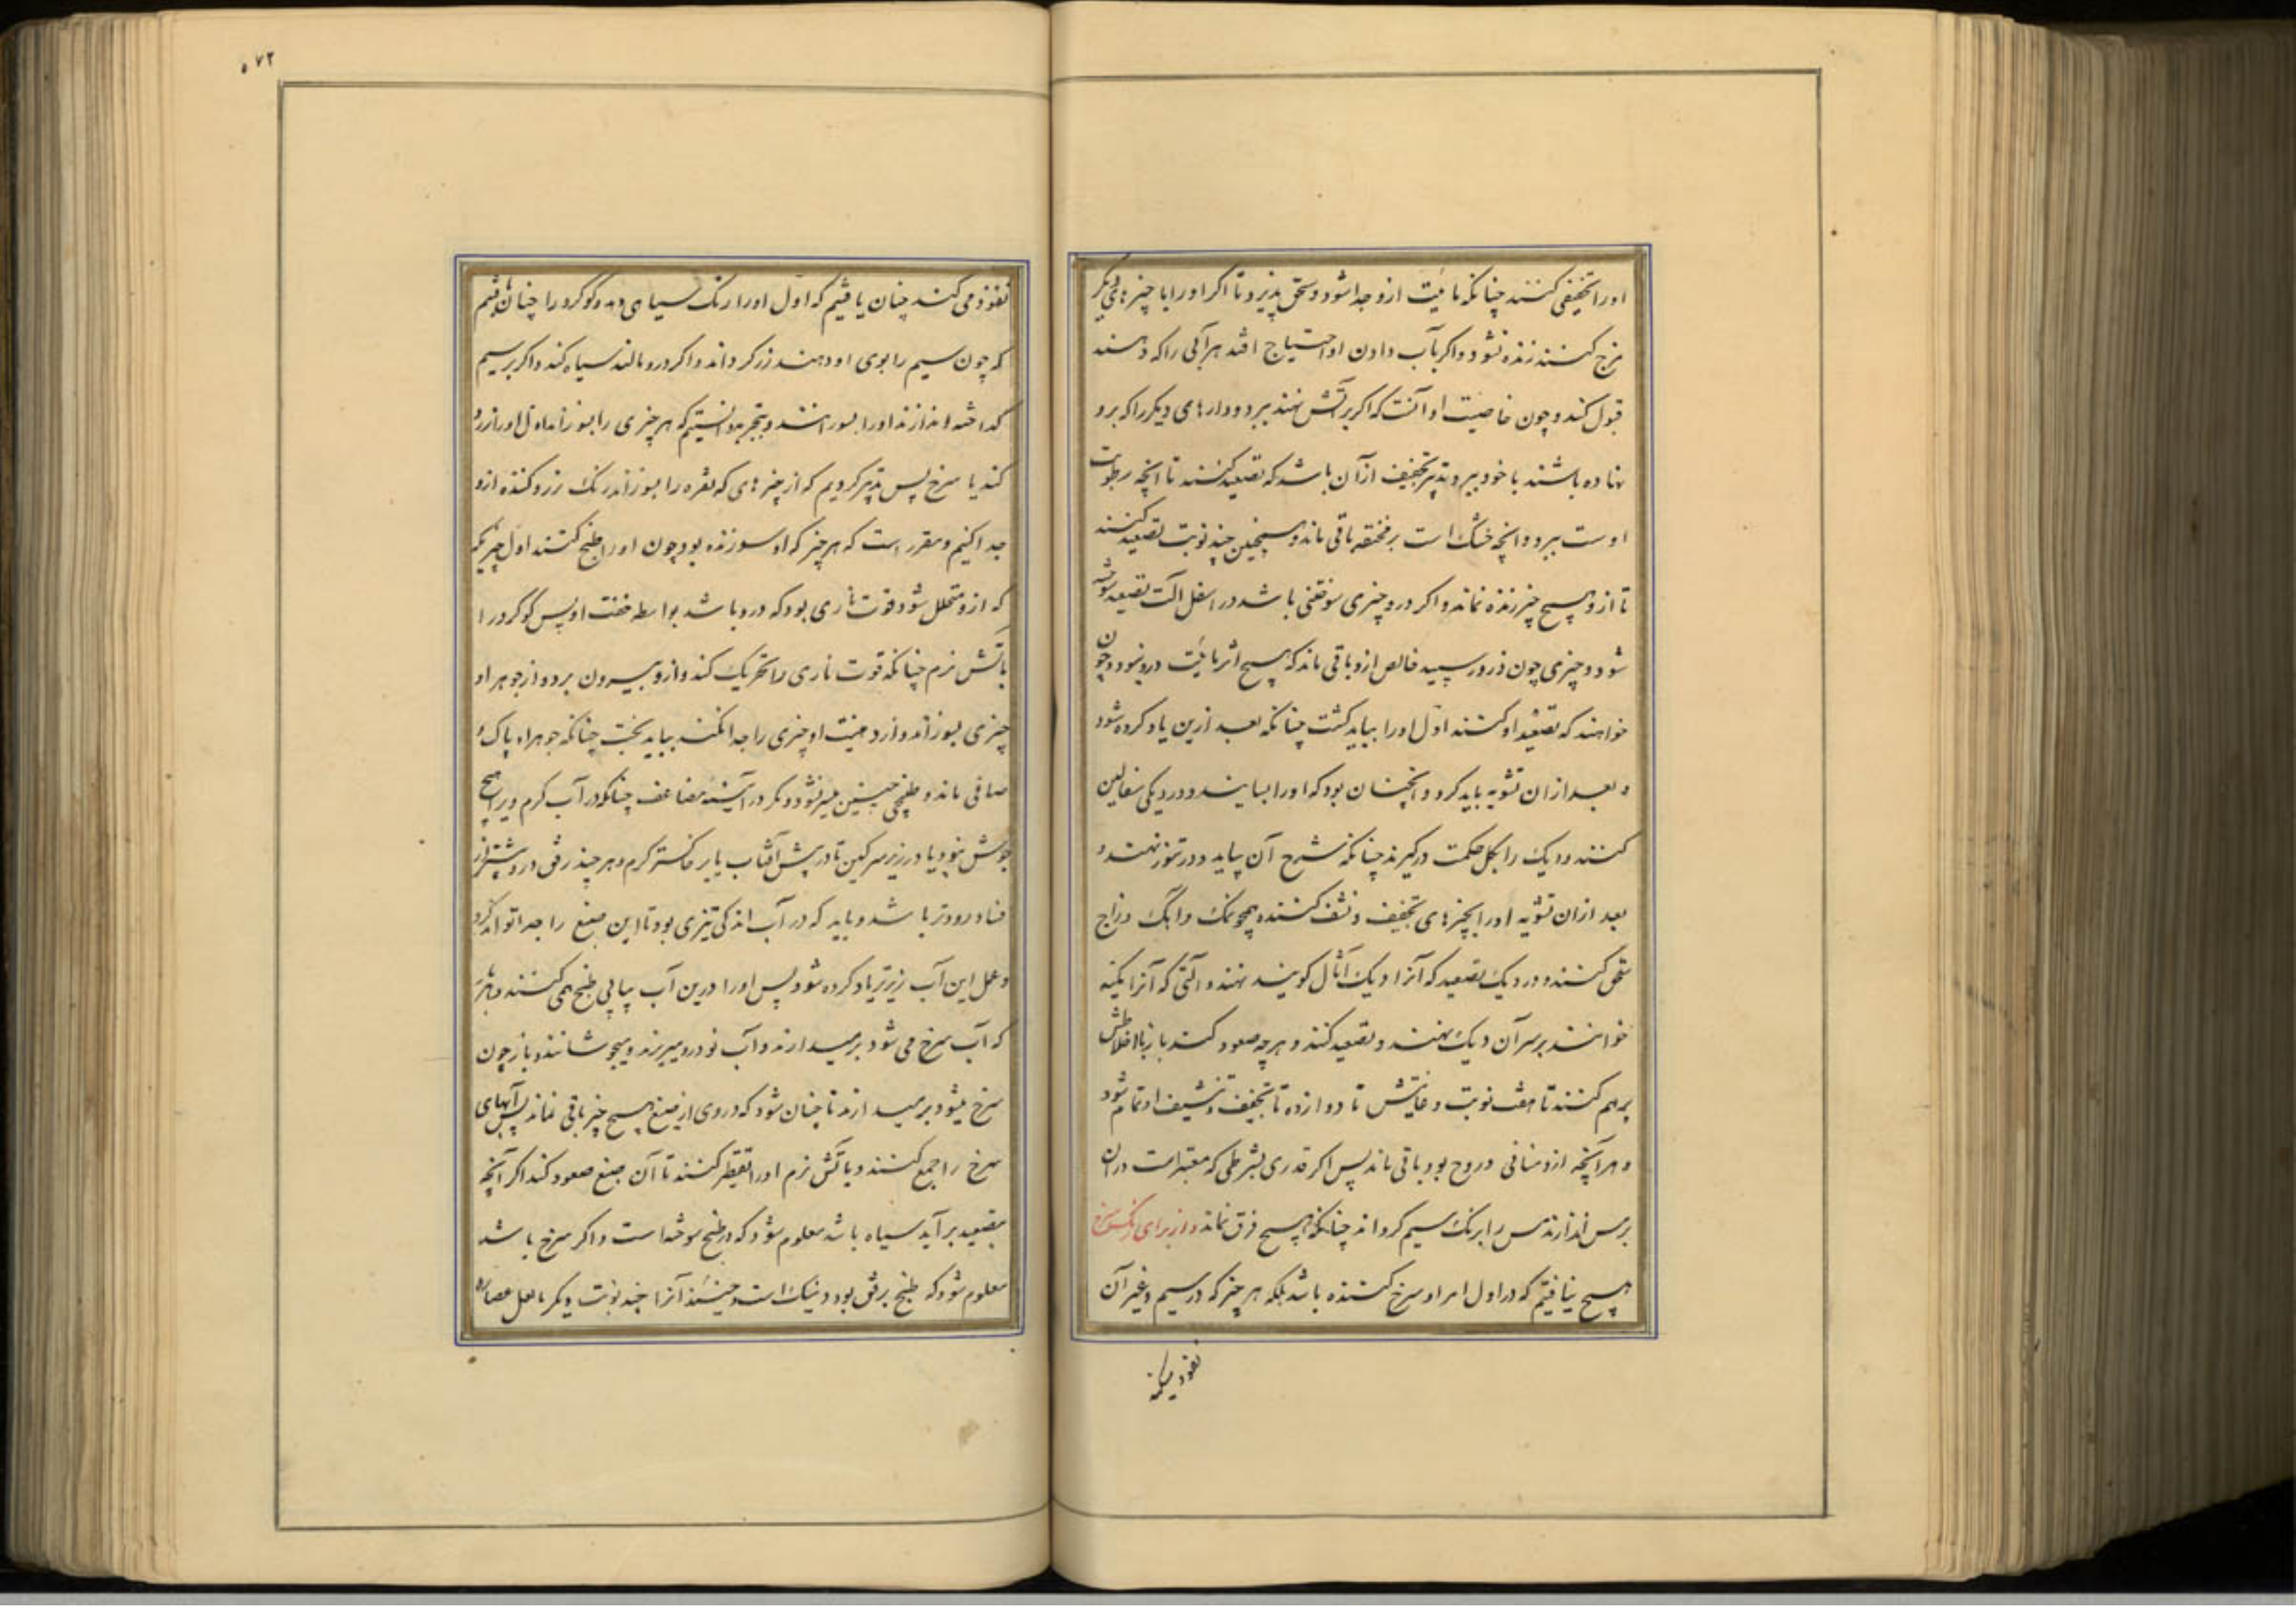 اورا تخفیفی کنند چنانکه مائیت ازو جدا شود و سحق پذیرد تا اگر اورا با چیزهای دیگر
مزج کنند زنده نشود و اگر بآب دادن او احتیاج افتد هر آبی را که دهند
قبول کند و چون خاصیت او آنست که اگر بر آتش نهند ببرد و دارهای دیگر را که برو
نهاده باشند با خود ببرد و تدبیر تجفیف از آن باشد که تصعید کنند تا آنچه رطوبت
اوست ببرد و آنچه خشک است بر مخنقه باقی ماند و همچنین چند نوبت تصعید کنند
تا ازو هیچ چیز زنده نماند و اگر درو چیزی سوختنی باشد در اسفل آلت تصعید سوخته
شود و چیزی چون ذرور سپید خالص ازو باقی ماند که هیچ اثر مائیت درو نبود و چون
خواهند که تصعید او کنند اول اورا بباید کشت چنانکه بعد ازین یاد کرده شود
و بعد از ان تشویه باید کرد و آنچنان بود که اورا بسایند و در دیکی سفالین
کنند و دیک را بکل حکمت درگیرند چنانکه شرح آن بیاید و در تنور نهند و
بعد از ان تشویه اورا بچیزهای تجفیف و نشف کننده همچو نمک و آهک و زاج
سحق کنند و در دیک تصعید که آنرا دیک اثال گویند نهند و آلتی که آنرا مکبه
خوانند بر سر آن دیک نهند و تصعید کنند و هر چه صعود کند باز با اخلاطش
برهم کنند تا هفت نوبت و غایتش تا دوازده تا تجفیف و تنشیف او تمام شود
و هر آنچه ازو منافی دروح بود باقی ماند پس اگر قدری بشرطی که معتبرست در ان
برمس اندازند مس را برنک سیم گرداند چنانکه هیچ فرق نماند و از برای رنک سرخ
هیچ نیافتیم که در اول امر او سرخ کننده باشد بلکه هر چیز که در سیم و غیر آن
نفوذ میکند
۵۷۲
نفوذ می کند چنان یافتیم که اول اورا رنک سیاهی دهد و گوگرد را چنان یافتیم
که چون سیم را بوی او دهند زرد گرداند و اگر درو مالند سیاه کند و اگر بر سیم
گداخته اندازند اورا بسوزانند و بتجربه دانستیم که هر چیزی را بسوزاند اول اورا زرد
کند یا سرخ پس تدبیر کردیم که از چیزهای که نقره را بسوزاند رنک زرد کننده ازو
جدا کنیم و مقرر است که هر چیز که او سوزنده بود چون اورا طبخ کنند اول چیزی
که ازو متحلل شود قوت ناری بود که درو باشد بواسطه خفت او پس گوگرد را
بآتش نرم چنانکه قوت ناری را تحریک کند و ازو بیرون برد و از جوهر او
چیزی بسوزاند و از دهنیت او چیزی را جدا نکند بباید پخت چنانکه جوهر او پاک و
صافی ماند و طبخی چنین میسر نشود و مگر در آنیه مضاعف چنانکه در آب گرم ویرا هیچ
جوش نبود یا در زیر سرگین تا در پیش آفتاب یا بر خاکستر گرم و هر چند رفق درو بیشتر از
فساد دورتر باشد و باید که در آب اندکی تیزی بود تا این صبغ را جدا تواند کرد
و عمل این آب زیرتر یاد کرده شود پس اورا درین آب پیاپی طبخ همی کنند و هر بار
که آب سرخ می شود برمیدارند و آب نو درو میریزند و میجوشانند و باز چون
سرخ میشود برمیدارند تا چنان شود که در وی از صبغ هیچ چیز باقی نماند پس آبهای
سرخ را جمع کنند و بآتش نرم اورا تقطیر کنند تا آن صبغ صعود کند اگر آنچه
بتصعید برآید سیاه باشد معلوم شود که در طبخ سوخته است و اگر سرخ باشد
معلوم شود که طبخ برفق بوده و نیک است و حینئذ آنرا چند نوبت دیگر با اهل عصاره